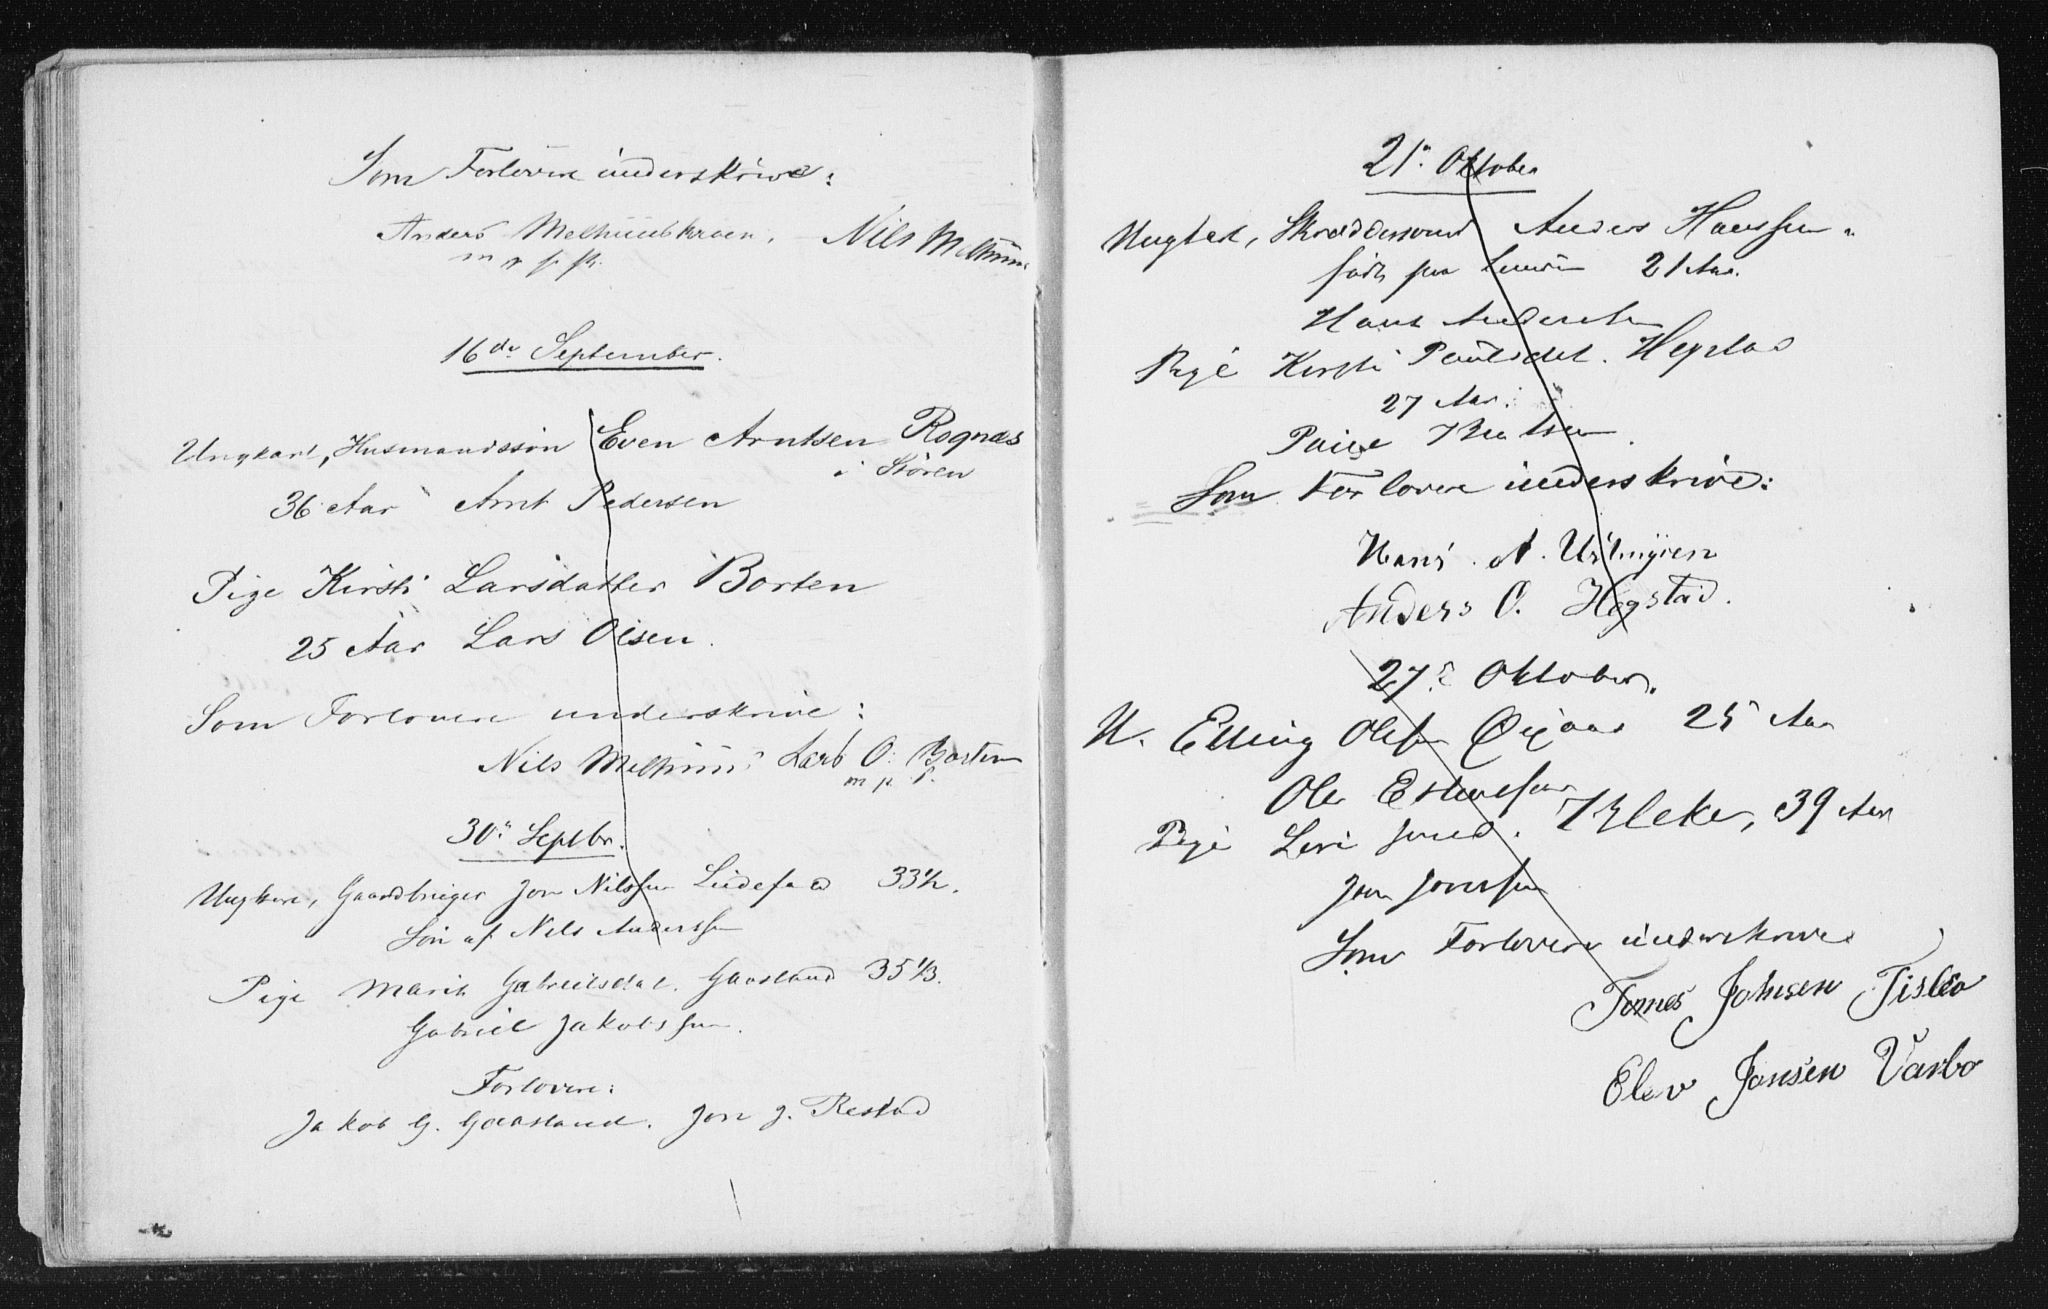 Som Forlovere underskrive:
Anders Melhuuskroen, Nils Melhuus
m p p
16de September.
Ungkarl, Husmandssön Even Arntsen Rognæs
i Støren
36 Aar Arnt Pedersen
Pige Kirsti Larsdatter Borten
25 Aar Lars Olsen.
Som Forlovere underskrive:
Nils Melhuus Lars O. Borten
m p. P.
30te Septbr.
Ungkarl, Gaardbruger Jon Nilssen 33½.
Sön af Nils Anderssen
Pige Marit Gabrielsdat. Gaasland 35⅓.
Gabriel Jakobssen.
Forlovere:
Jakob G. Gaasland. Jon J. Restad
21. Oktober
Ungkarl, Skræddersvend Anders Hanssen
født paa 21 Aar.
Hans Anderssen
Pige Kirsti Paulsdat. Hegstad
27 Aar.
Knutsen.
Som Forlovere underskrive:
Hans A.
Anders O. Hegstad.
27de Oktober.
U. Elling Olsen Øxaas 25 Aar
Ole Estensen
Pige Beret Jonsd. Kleke, 39 Aar
Jon Jonssen
Som Forlovere underskrive
Tomes Johnsen
Elev Jonsen Varbo